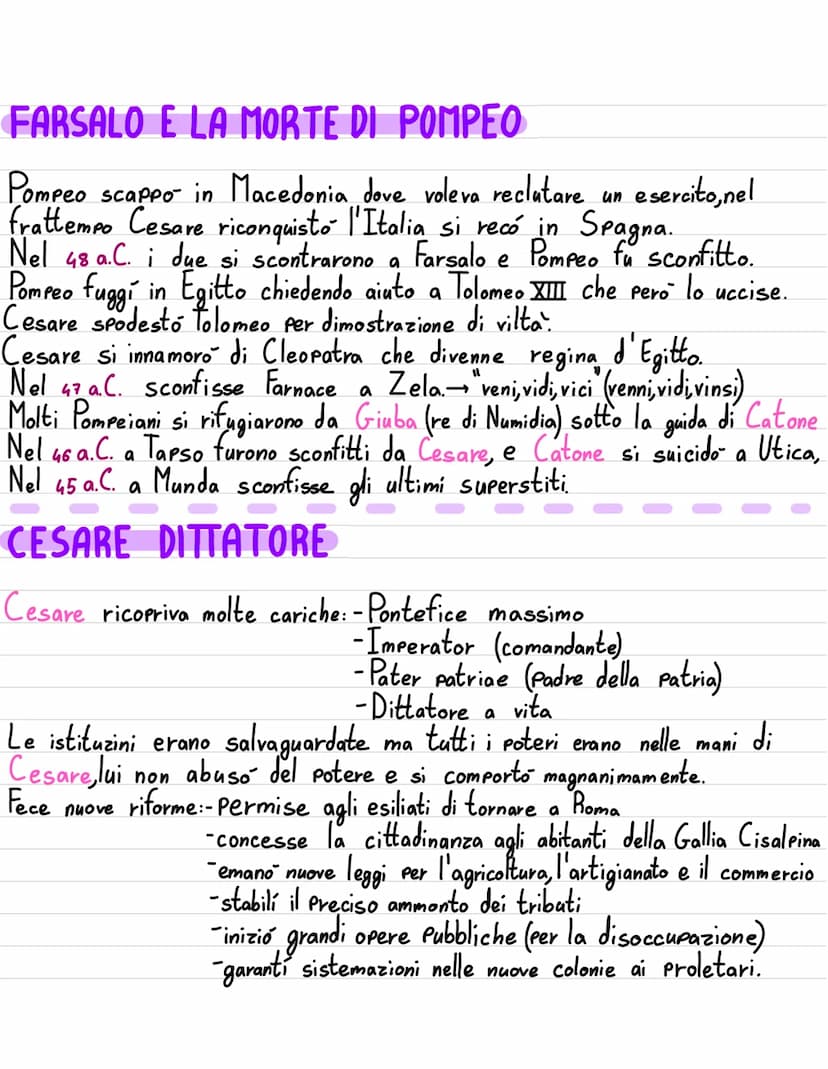 FARSALO E LA MORTE DI POMPEO
Pompeo scappò in Macedonia dove voleva reclutare un esercito,nel
frattempo Cesare riconquistò l'Italia si recó in Spagna.
Nel 48 a.C. i due si scontrarono a Farsalo e Pompeo fu sconfitto.
Pompeo fuggí in Egitto chiedendo aiuto a Tolomeo XIII che però lo uccise.
Cesare spodestó Tolomeo per dimostrazione di viltà.
Cesare si innamorò di Cleopatra che divenne regina d'Egitto.
Nel 47 a.C. sconfisse Farnace a Zela.→"veni,vidi,vici"(venni,vidi,vinsi)
Molti Pompeiani si rifugiarono da Giuba (re di Numidia) sotto la guida di Catone
Nel 46 a.C. a Tapso furono sconfitti da Cesare, e Catone si suicidò a Utica,
Nel 45 a.C. a Munda sconfisse gli ultimi superstiti.
CESARE DITTATORE
Cesare ricopriva molte cariche: -Pontefice massimo
-Imperator (comandante)
-Pater patriae (padre della patria)
-Dittatore a vita
Le istituzini erano salvaguardate ma tutti i poteri erano nelle mani di
Cesare,lui non abusò del potere e si comportò magnanimamente.
Fece nuove riforme:-permise agli esiliati di tornare a Roma
-concesse la cittadinanza agli abitanti della Gallia Cisalpina
-emanò nuove leggi per l'agricoltura,l'artigianato e il commercio
-stabilí il preciso ammonto dei tributi
-inizió grandi opere pubbliche (per la disoccupazione)
-garantí sistemazioni nelle nuove colonie ai proletari.